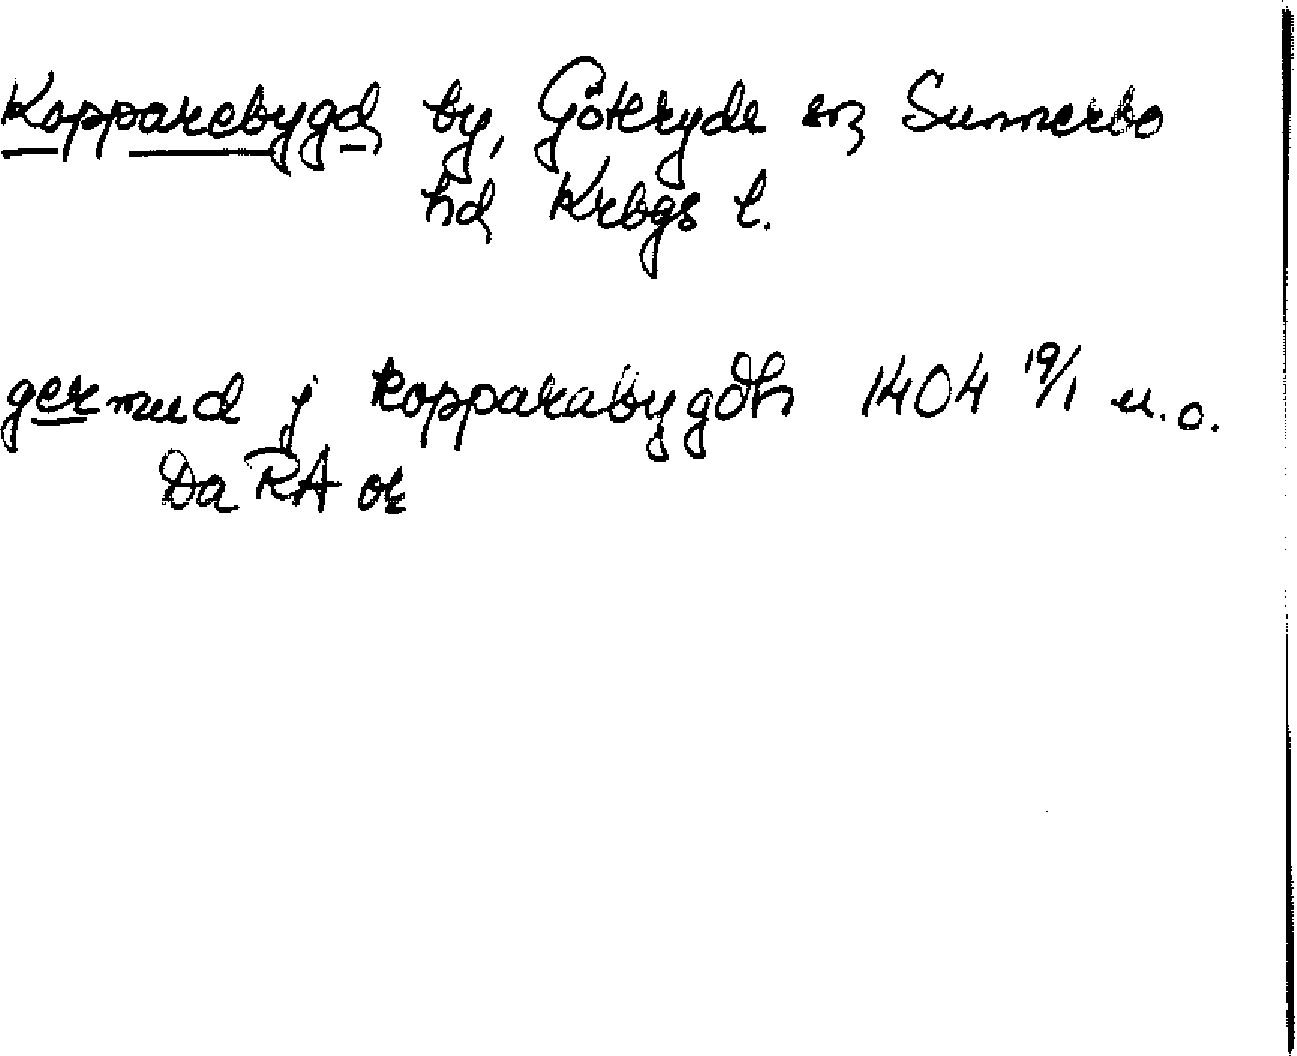 Kopparebygd, by, Göteryds sn, Sunnerbo
hd, Krbgs l.
germud j kopparabygdh 1404 19/1 u.o.
Da RA or